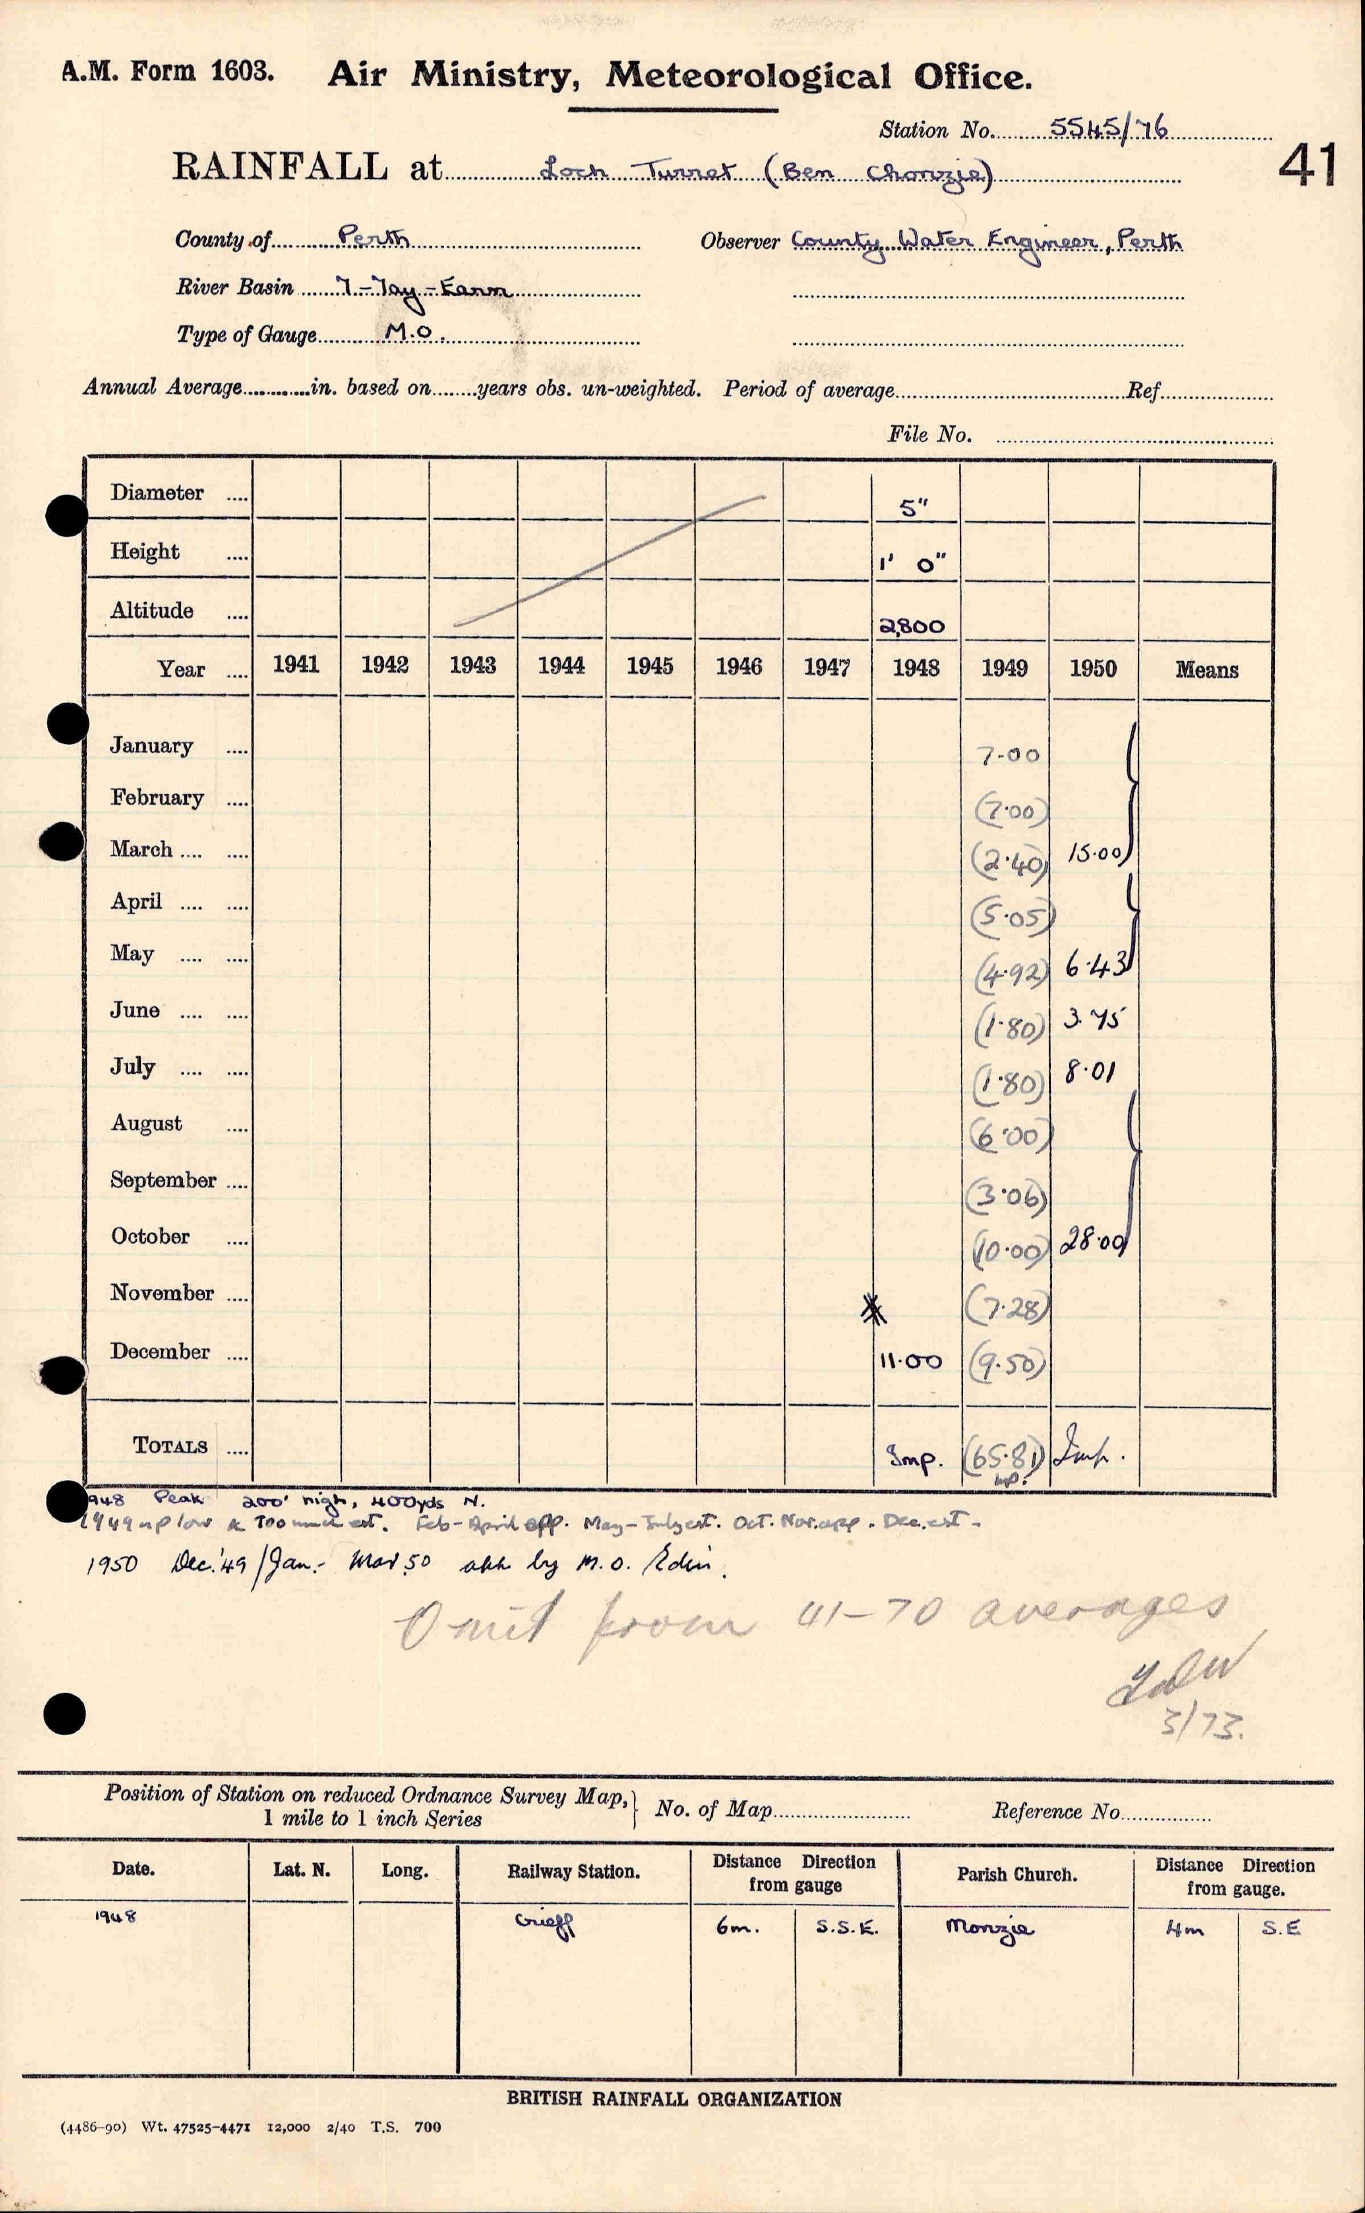 A.M. Form 1603. Air Ministry, Meteorological Office.
Station No. 5545/76
RAINFALL at Loch Turret (Ben Chonzie)
41
County of Perth Observer County Water Engineer, Perth
River Basin 7-Tay-Earn
Type of Gauge M.O.
Annual Average in. based on years obs. un-weighted. Period of average Ref
File No.
Diameter .... 5"
Height .... 1' 0"
Altitude .... 2,800
Year .... 1941 1942 1943 1944 1945 1946 1947 1948 1949 1950 Means
January .... 7.00
February .... (7.00)
March .... .... (2.40) 15.00
April .... .... (5.05)
May .... .... (4.92) 6.43
June .... .... (1.80) 3.75
July .... .... (1.80) 8.01
August .... (6.00)
September .... (3.06)
October .... (10.00) 28.00
November .... (7.28)
December .... 11.00 (9.50)
TOTALS .... Imp. (65.81) Imp.
Imp.
1948 Peak 200' high, 400yds N.
1949 low & too much est. Feb-April app. May-July est. Oct. Nov. app. Dec. est.
1950 Dec. '49/Jan.- Mar 50 by M.O. Edin.
Omit from 41-70 averages
3/73.
Position of Station on reduced Ordnance Survey Map, } No. of Map Reference No.
1 mile to 1 inch Series
Date. Lat. N. Long. Railway Station. Distance Direction from gauge Parish Church. Distance Direction from gauge.
1948 Crieff 6m. S.S.E. Monzie 4m S.E
BRITISH RAINFALL ORGANIZATION
(4486-90) Wt. 47525-4471 12,000 2/40 T.S. 700